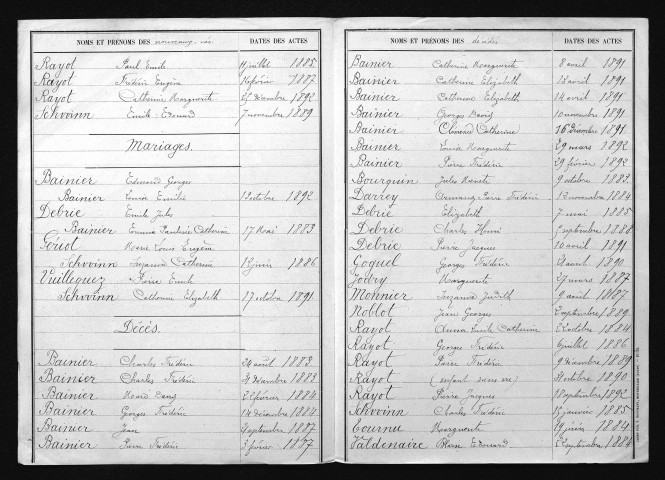 NOMS ET PRÉNOMS DES nouveaux-nés DATES DES ACTES
Rayot Paul Emile juillet 1885
Rayot Frédéric Eugène 1887
Rayot Catherine Marguerite 25 décembre 1892
Schvoinn Emile Edouard 7 novembre 1889
Mariages.
Bainier Edmond Georges
Bainier Emilie octobre 1892
Debrie Emile Jules
Bainier Emma Pauline Catherine 17 Mai 1883
Louis Eugène
Schvoinn Suzanne Catherine juin 1886
Vuillequez Pierre Emile
Schvoinn Catherine Elizabeth 17 octobre 1891
Décés.
Bainier Charles Frédéric 24 août 1883
Bainier Charles Frédéric décembre 1883
Bainier février 1884
Bainier Georges Frédéric 14 décembre 1884
Bainier Jean septembre 1887
Bainier Pierre Frédéric 3 février 1887
NOMS ET PRÉNOMS DES décédés DATES DES ACTES
Bainier Catherine Marguerite 8 avril 1891
Bainier Catherine Elizabeth avril 1891
Bainier Catherine Elizabeth 14 avril 1891
Bainier Georges David 10 novembre 1891
Bainier Catherine 16 décembre 1891
Bainier Marguerite 29 mars 1892
Bainier Pierre Frédéric 29 février 1892
Bourquin Jules octobre 1883
Darrey Pierre Frédéric novembre 1884
Debrie Elizabeth 7 mai 1885
Debrie Charles Henri septembre 1888
Debrie Pierre Jacques 10 avril 1891
Goguel Georges Frédéric août 1890
Jodry Marguerite 27 mars 1887
Monnier Suzanne Judith 9 août 1887
Noblot Jean Georges septembre 1889
Rayot Catherine octobre 1884
Rayot Georges Frédéric juillet 1886
Rayot Pierre Frédéric 9 décembre 1889
Rayot (enfant sans vie) octobre 1890
Rayot Pierre Jacques septembre 1892
Schvoinn Charles Frédéric janvier 1885
Tournu Marguerite 19 juin 1884
Valdenaire Edouard septembre 1884